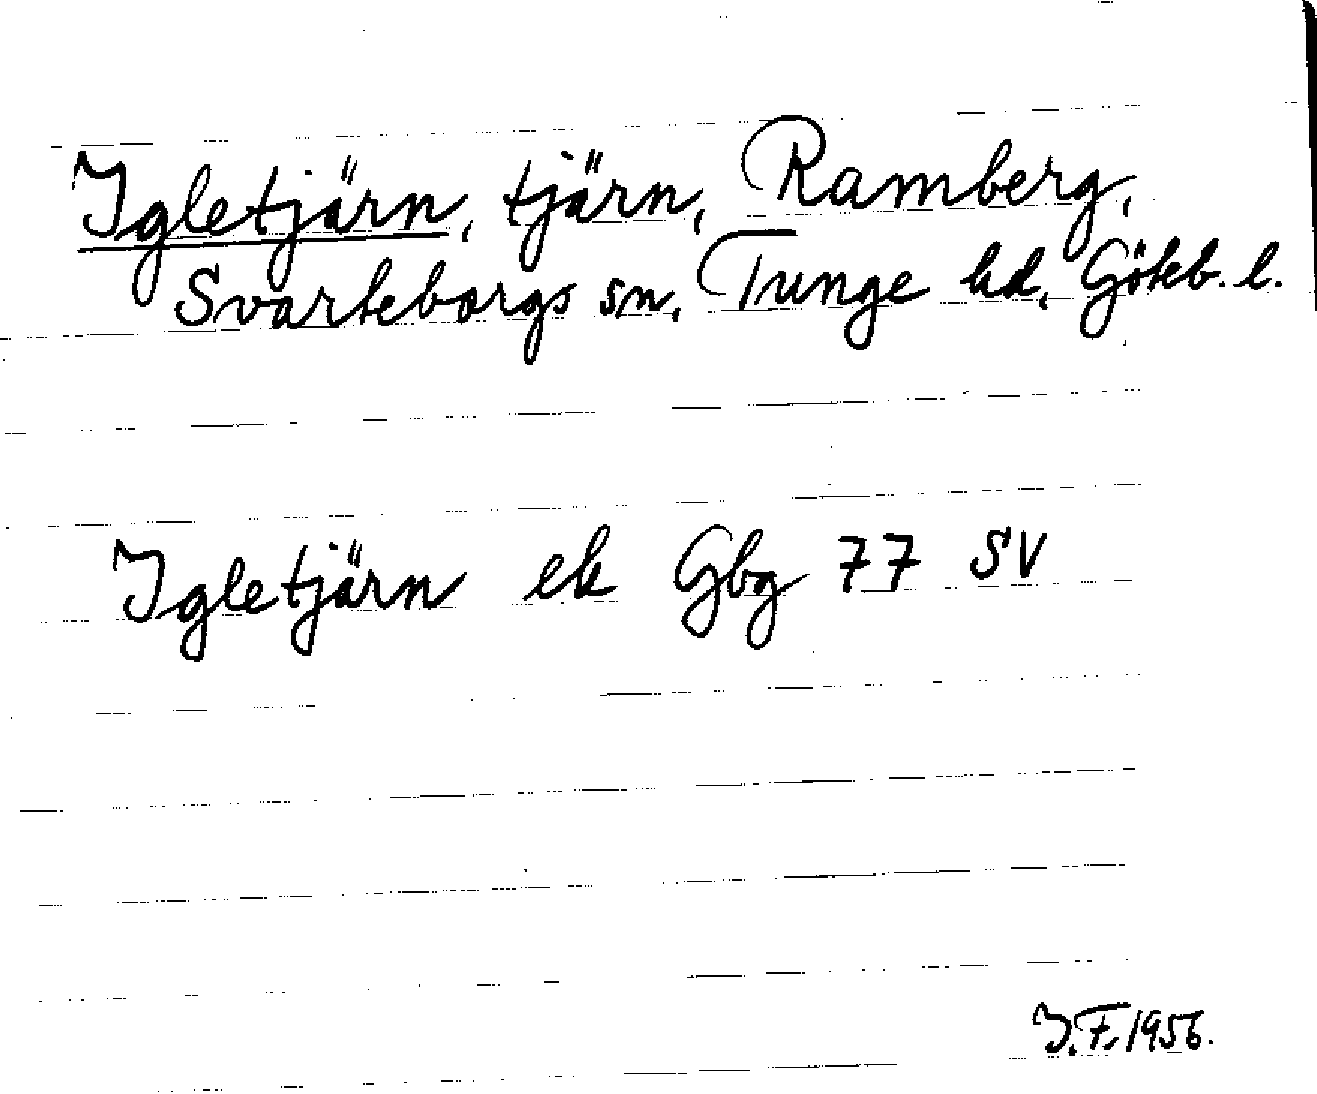 Igletjärn, tjärn, Ramberg,
Svarteborgs sn, Tunge hd, Götebb. l.
Igletjärn ek Gbg 77 SV
J.F. 1956.